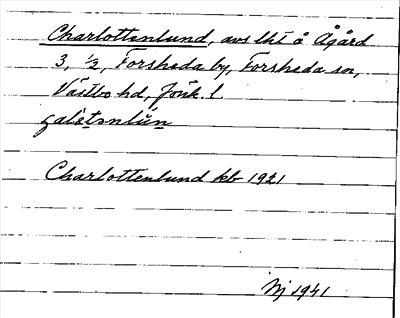 Charlottenlund, avs lht å Ågård
3, ½, Forsheda by, Forsheda sn,
Västbo hd, Jönk. l
Charlottenlund kb 1921
1941